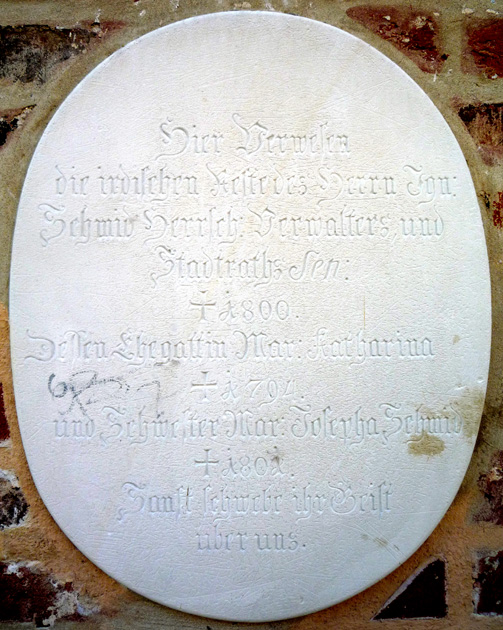 Hier Verwesen
die irdischen Reste des Herrn Ign:
Schmid Herrsch: Verwalters, und
Stadtraths Sen:
† 1800.
Dessen Ehegattin Mar: Katharina
† 1794.
und Schwester Mar: Josepha Schmid
† 1801.
Sanft schwebe ihr Geist
über uns.